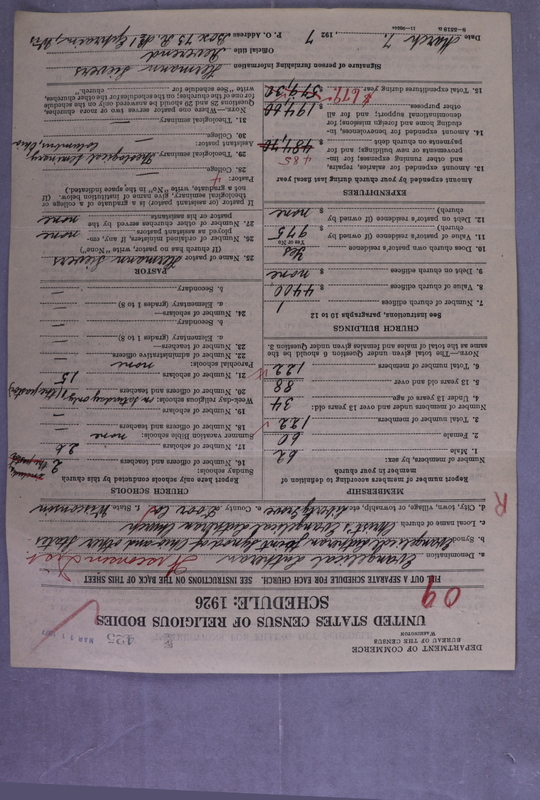 DEPARTMENT OF COMMERCE
BUREAU OF THE CENSUS
WASHINGTON
425
UNITED STATES CENSUS OF RELIGIOUS BODIES
SCHEDULE: 1926
09
FILL OUT A SEPARATE SCHEDULE FOR EACH CHURCH. SEE INSTRUCTIONS ON THE BACK OF THIS SHEET
a. Denomination Evangelical Lutheran
b. Synod Evangelical Lutheran Joint Synod of Ohio and other States
c. Local name of church Christ's Evangelical Lutheran Church
d. City, town, village, or township, etc. e. County Door Co. f. State Wisconsin
R
MEMBERSHIP
Report number of members according to definition of member in your church
Number of members, by sex:
1. Male 62
2. Female 60
3. Total number of members 122
Number of members under and over 13 years old:
4. Under 13 years of age 34
5. 13 years old and over 88
6. Total number of members 122
NOTE.—The total given under Question 6 should be the same as the total of males and females given under Question 3.
CHURCH BUILDINGS
See instructions, paragraphs 10 to 12
7. Number of church edifices 1
8. Value of church edifices $ 4400
9. Debt on church edifices $ none
10. Does church own pastor's residence Yes
Yes or No
11. Value of pastor's residence (if owned by church) $ 975
12. Debt on pastor's residence (if owned by church) $ none
EXPENDITURES
Amount expended by your church during last fiscal year
13. Amount expended for salaries, repairs, and other running expenses; for improvements or new buildings; and for payments on church debt $ 484,70
485
14. Amount expended for benevolences, including home and foreign missions; for denominational support; and for all other purposes $ 194,60
15. Total expenditures during year $
$679
CHURCH SCHOOLS
Report here only schools conducted by this church
Sunday schools:
16. Number of officers and teachers 2
17. Number of scholars 26
Summer vacation Bible schools:
18. Number of officers and teachers none
19. Number of scholars —
Week-day religious schools:
20. Number of officers and teachers on Saturday only 1 (the pastor)
21. Number of scholars 15
Parochial schools:
22. Number of administrative officers none
23. Number of teachers—
a. Elementary (grades 1 to 8) —
b. Secondary —
24. Number of scholars—
a. Elementary (grades 1 to 8) —
b. Secondary —
PASTOR
25. Name of pastor Hermann Sievers
(If church has no pastor, write "None")
26. Number of ordained minister, if any, employed as assistant pastors none
27. Number of other churches served by the pastor or his assistants none
If pastor (or assistant pastor) is a graduate of a college or theological seminary, give name of institution below. (If not a graduate, write "No" in the space indicated.)
Pastor:
28. College —
29. Theological seminary Theological Seminary Columbus, Ohio
Assistant pastor:
30. College —
31. Theological seminary —
NOTE.—Where one pastor serves two or more churches, Questions 28 and 29 should be answered only on the schedule for one of the churches; on the schedules for the other churches, write "See schedule for church."
Signature of person furnishing information Hermann Sievers
Official title Reverend
P. O. Address Box 75 R. No 1 Ephraim, Wis
Date March 7, 1927